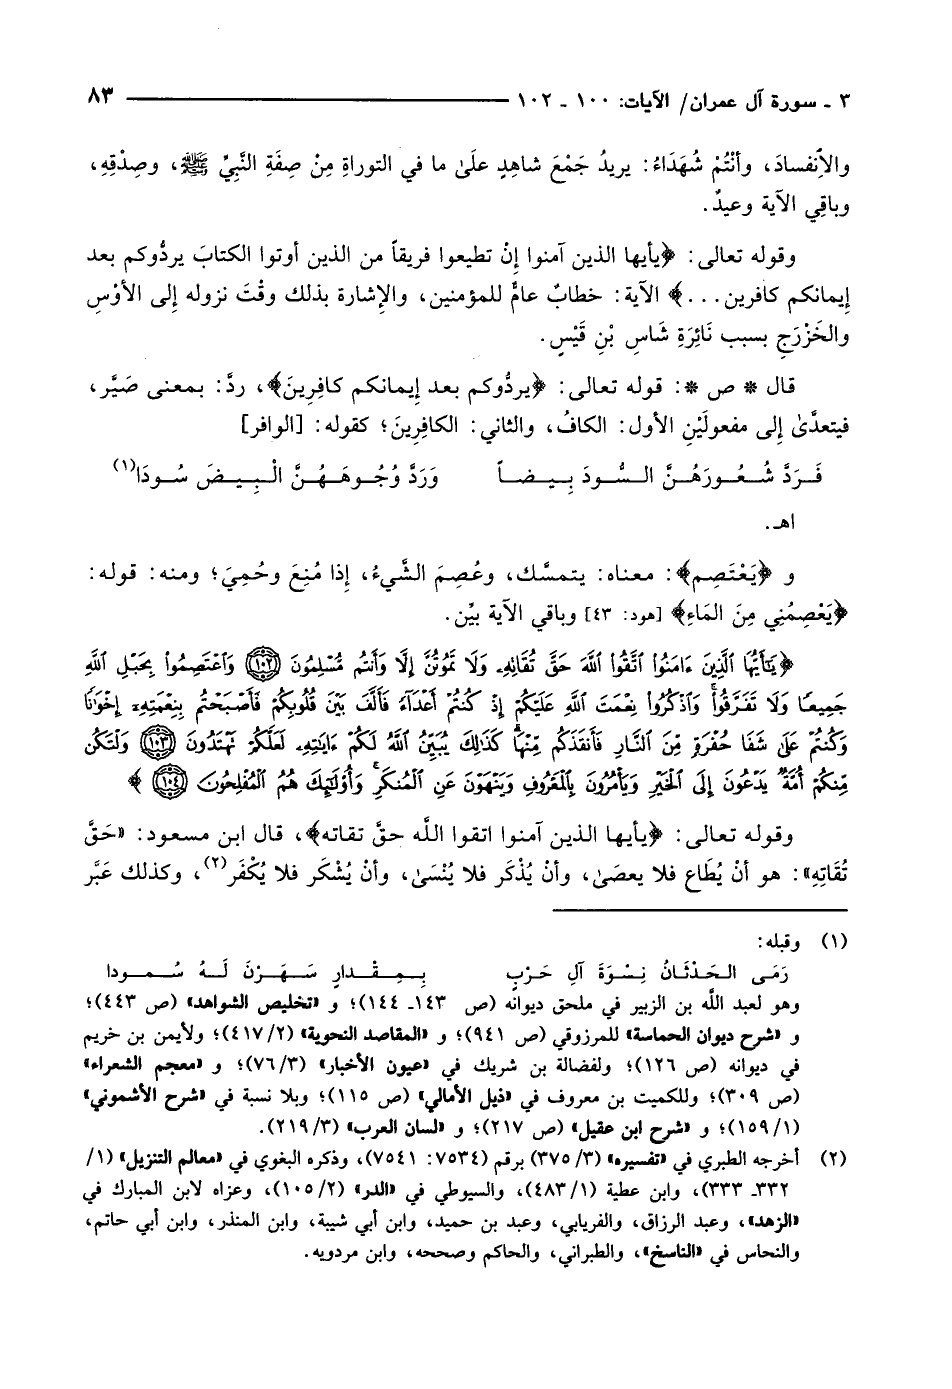 ٣ ـ سورة آل عمران/ الآيات: ١٠٠ ـ ١٠٢ ٨٣
والاِنفسادَ، وأنْتُمْ شُهَدَاءُ: يريدُ جَمْعَ شاهِدٍ علَىٰ ما في التوراةِ مِنْ صِفَةِ النَّبِيِّ ﷺ، وصِدْقِهِ،
وباقِي الآية وعيدٌ.
وقوله تعالى: ﴿يأيها الذين آمنوا إِنْ تطيعوا فريقاً من الذين أوتوا الكتابَ يردُّوكم بعد
إِيمانكم كافرين...﴾ الآية: خطابٌ عامٌّ للمؤمنين، والإِشارة بذلك وقْتَ نزوله إِلى الأوْسِ
والخَزْرَجِ بسبب نَائِرَةِ شَاسِ بْنِ قَيْسٍ.
قال * ص *: قوله تعالى: ﴿يردُّوكم بعد إِيمانكم كافِرِينَ﴾، ردَّ: بمعنى صَيَّر،
فيتعدَّىٰ إِلى مفعولَيْنِ الأول: الكافُ، والثاني: الكافِرِينَ؛ كقوله: [الوافر]
فَرَدَّ شُعُورَهُنَّ السُّودَ بِيضاً وَرَدَّ وُجُوهَهُنَّ الْبِيضَ سُودَا(١)
اهـ.
و ﴿يَعْتَصِم﴾: معناه: يتمسَّك، وعُصِمَ الشَّيءُ، إِذا مُنِعَ وحُمِيَ؛ ومنه: قوله:
﴿يَعْصِمُنِي مِنَ المَاءِ﴾ [هود: ٤٣] وباقي الآية بيِّن.
﴿يَٰٓأَيُّهَا ٱلَّذِينَ ءَامَنُوا۟ ٱتَّقُوا۟ ٱللَّهَ حَقَّ تُقَاتِهِۦ وَلَا تَمُوتُنَّ إِلَّا وَأَنتُم مُّسْلِمُونَ ١٠٢ وَٱعْتَصِمُوا۟ بِحَبْلِ ٱللَّهِ
جَمِيعًا وَلَا تَفَرَّقُوا۟ وَٱذْكُرُوا۟ نِعْمَتَ ٱللَّهِ عَلَيْكُمْ إِذْ كُنتُمْ أَعْدَآءً فَأَلَّفَ بَيْنَ قُلُوبِكُمْ فَأَصْبَحْتُم بِنِعْمَتِهِۦٓ إِخْوَٰنًا
وَكُنتُمْ عَلَىٰ شَفَا حُفْرَةٍ مِّنَ ٱلنَّارِ فَأَنقَذَكُم مِّنْهَا كَذَٰلِكَ يُبَيِّنُ ٱللَّهُ لَكُمْ ءَايَٰتِهِۦ لَعَلَّكُمْ تَهْتَدُونَ ١٠٣ وَلْتَكُن
مِّنكُمْ أُمَّةٌ يَدْعُونَ إِلَى ٱلْخَيْرِ وَيَأْمُرُونَ بِٱلْمَعْرُوفِ وَيَنْهَوْنَ عَنِ ٱلْمُنكَرِ وَأُو۟لَٰٓئِكَ هُمُ ٱلْمُفْلِحُونَ ١٠٤﴾
وقوله تعالى: ﴿يأيها الذين آمنوا اتقوا اللَّه حقَّ تقاته﴾، قال ابن مسعود: «حَقَّ
تُقَاتِهِ»: هو أنْ يُطَاع فلا يعصَىٰ، وأنْ يُذْكَر فلا يُنْسَىٰ، وأنْ يُشْكَر فلا يُكْفَر(٢)، وكذلك عَبَّر
(١) وقبله:
رَمَى الحَدْثَانُ نِسْوَةَ آلِ حَرْبٍ بِمِقْدارٍ سَهَرْنَ لَهُ سُمودا
وهو لعبد اللَّه بن الزبير في ملحق ديوانه (ص ١٤٣ـ ١٤٤)؛ و «تخليص الشواهد» (ص ٤٤٣)؛
و «شرح ديوان الحماسة» للمرزوقي (ص ٩٤١)؛ و «المقاصد النحوية» (٢/ ٤١٧)؛ ولأيمن بن خريم
في ديوانه (ص ١٢٦)؛ ولفضالة بن شريك في «عيون الأخبار» (٣/ ٧٦)؛ و «معجم الشعراء»
(ص ٣٠٩)؛ وللكميت بن معروف في «ذيل الأمالي» (ص ١١٥)؛ وبلا نسبة في «شرح الأشموني»
(١/ ١٥٩)؛ و «شرح ابن عقيل» (ص ٢١٧)؛ و «لسان العرب» (٣/ ٢١٩).
(٢) أخرجه الطبري في «تفسيره» (٣/ ٣٧٥) برقم (٧٥٣٤: ٧٥٤١)، وذكره البغوي في «معالم التنزيل» (١/
٣٣٢ـ ٣٣٣)، وابن عطية (١/ ٤٨٣)، والسيوطي في «الدر» (٢/ ١٠٥)، وعزاه لابن المبارك في
«الزهد»، وعبد الرزاق، والفريابي، وعبد بن حميد، وابن أبي شيبة، وابن المنذر، وابن أبي حاتم،
والنحاس في «الناسخ»، والطبراني، والحاكم وصححه، وابن مردويه.